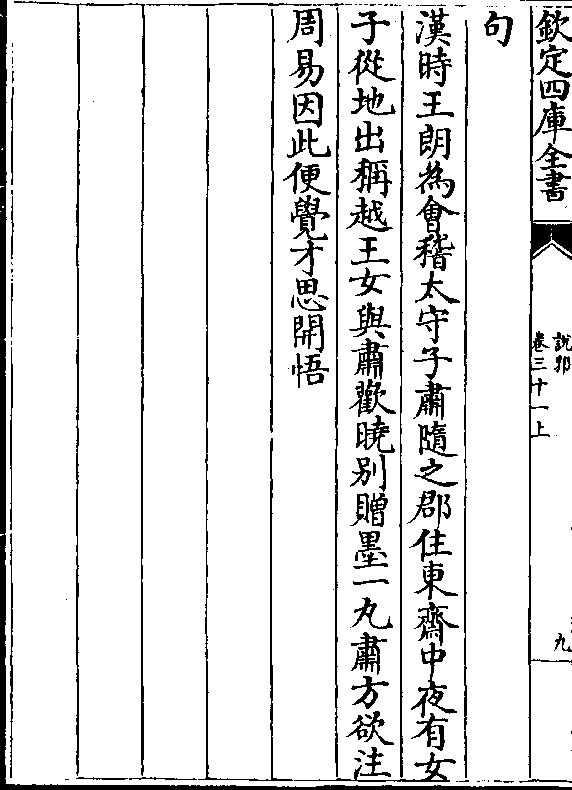 欽定四庫全書
說郛
卷三十一上
九
句
漢時王朗為會稽太守子肅隨之郡住東齋中夜有女
子從地出稱越王女與肅歡曉别贈墨一丸肅方欲注
周易因此便覺才思開悟